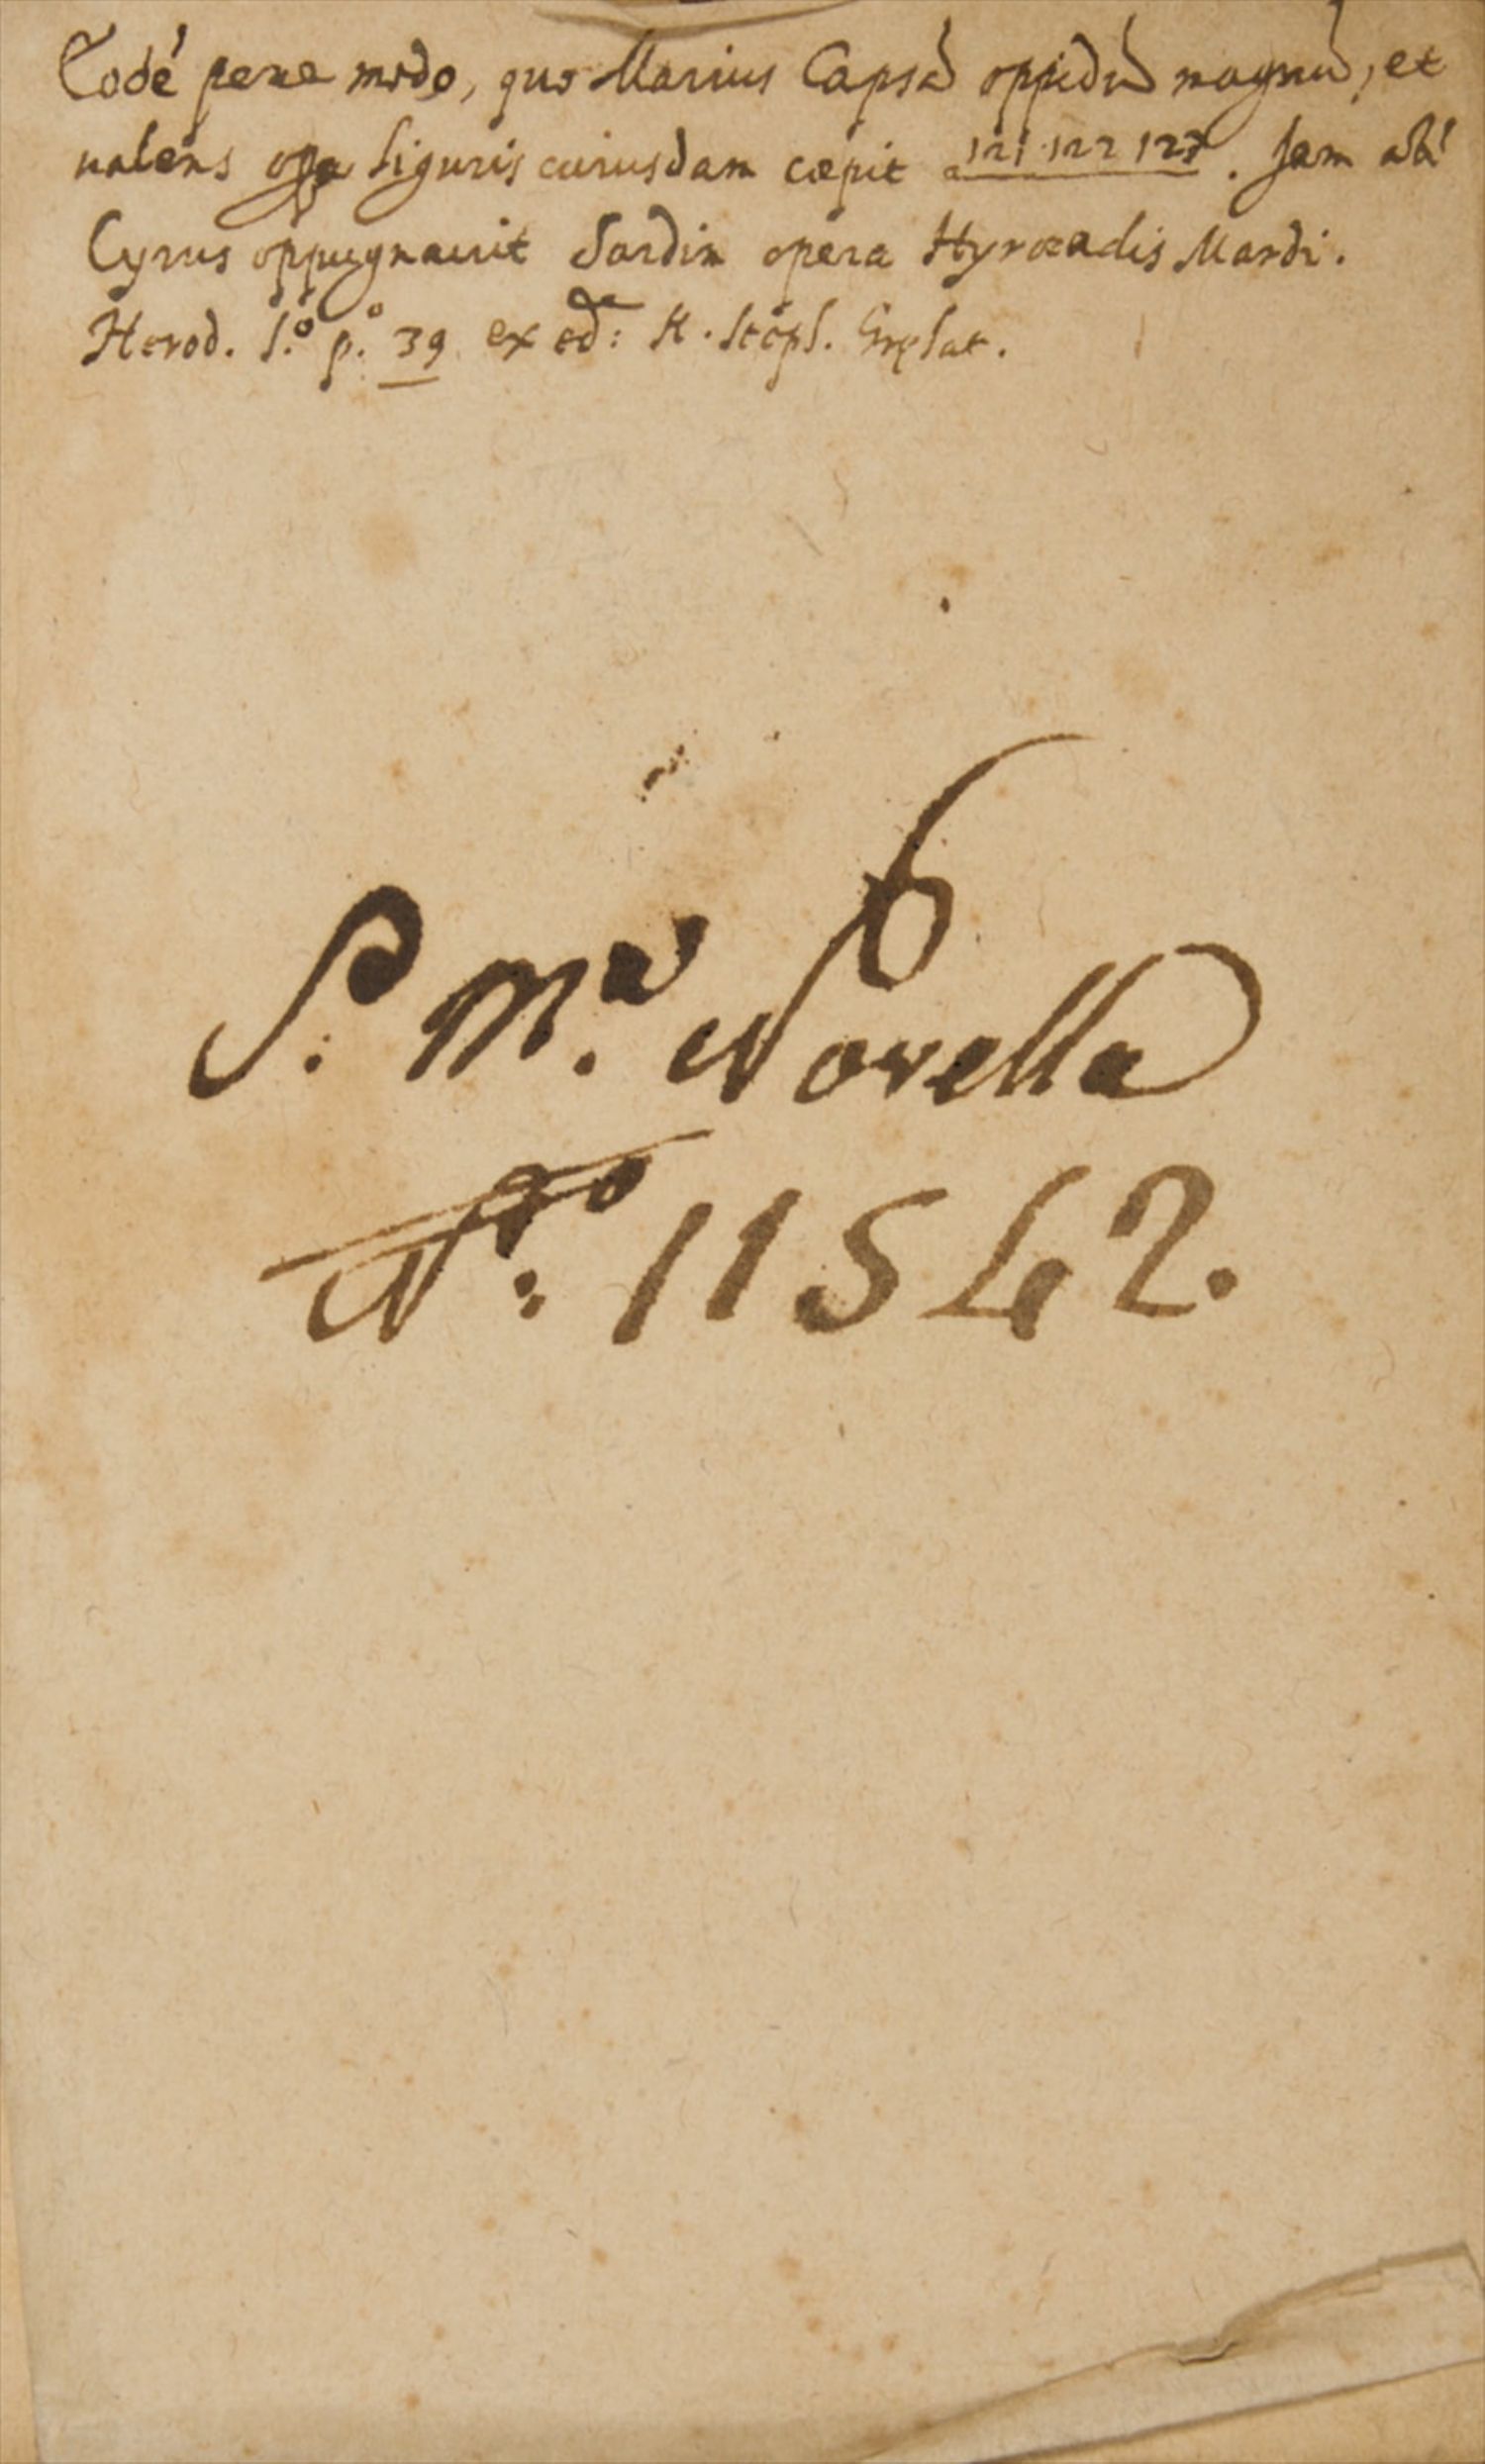 Eodé pene modo, quo Marius Capsã oppidũ magnũ, et
ualens opa Liguris cuiusdam cœpit a 121·122 123. Jam
Cyrus oppugnauit Sardin opera Hyrœadis Mardi.
Herod. l.º p.º 39 ex ed: H. Steph.
S. M.ª Novella
N.º 11542.